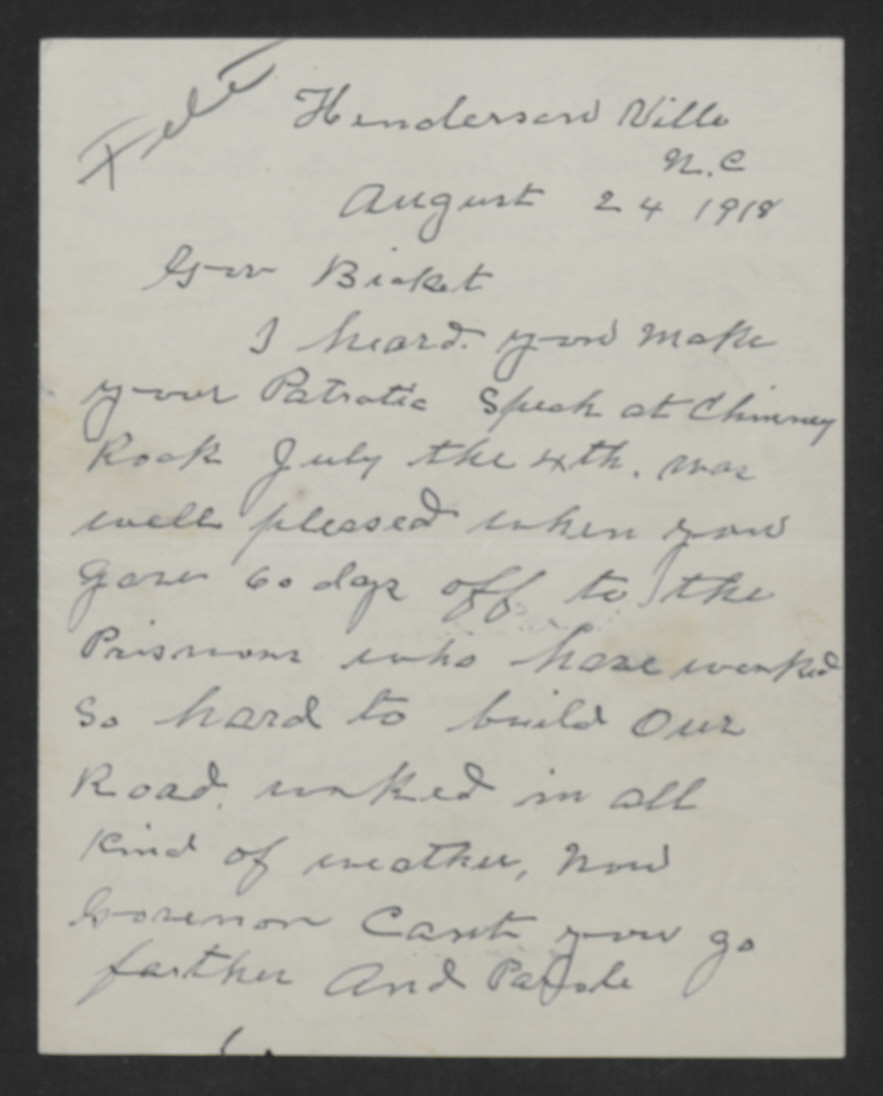 File
Henderson Ville
N.C
August 24 1918
Gov Bicket
I heard you make
your Patrotic Spech at Chimney
Rock July the 4th. was
well pleased when you
gave 60 days off to the
Prisnors who have worked
So hard to build Our
Road. worked in all
Kind of weather, Now
Govenor Cant you go
farther And Parole